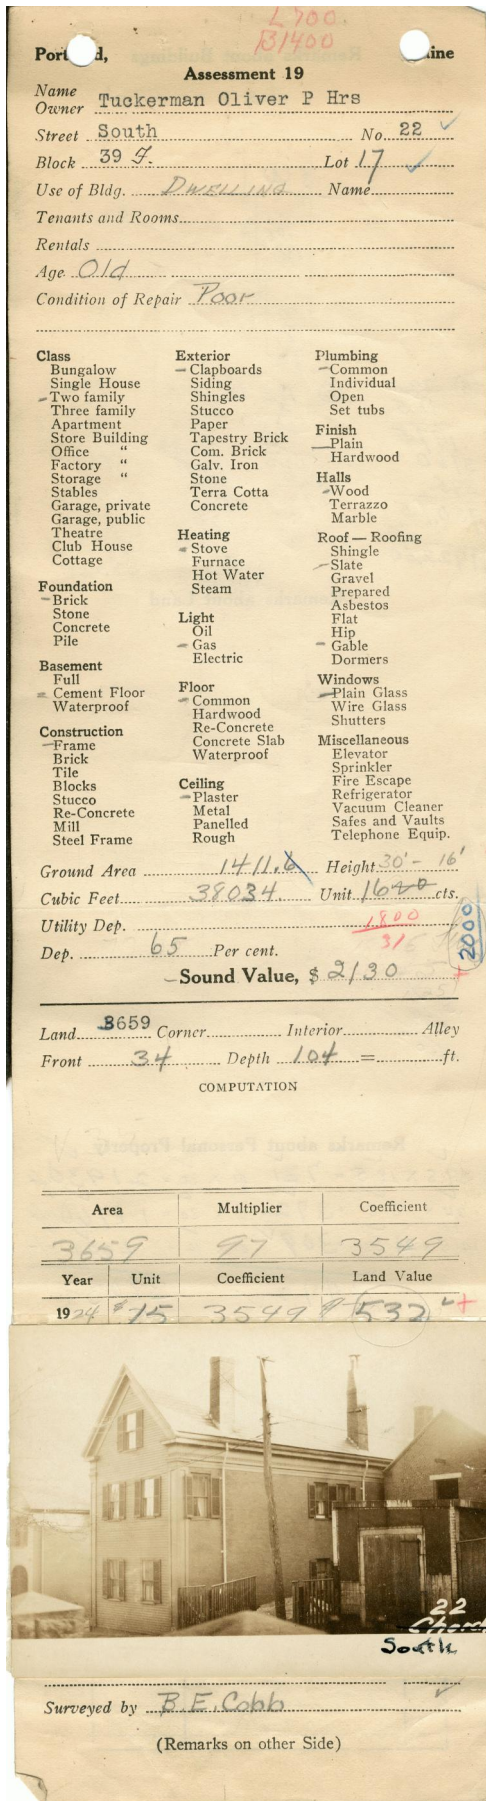 L700.
B1400
Portland, Maine
Assessment 19
Name
Owner Tuckerman Oliver P Hrs
Street South No. 22
Block 39 F. Lot 17
Use of Bldg. Dwelling Name
Tenants and Rooms
Rentals
Age Old
Condition of Repair Poor
Class
Bungalow
Single House
Two family
Three family
Apartment
Store Building
Office "
Factory "
Storage "
Stables
Garage, private
Garage, public
Theatre
Club House
Cottage
Foundation
Brick
Stone
Concrete
Pile
Basement
Full
Cement Floor
Waterproof
Construction
Frame
Brick
Tile
Blocks
Stucco
Re-Concrete
Mill
Steel Frame
Exterior
Clapboards
Siding
Shingles
Stucco
Paper
Tapestry Brick
Com. Brick
Galv. Iron
Stone
Terra Cotta
Concrete
Heating
Stove
Furnace
Hot Water
Steam
Light
Oil
Gas
Electric
Floor
Common
Hardwood
Re-Concrete
Concrete Slab
Waterproof
Ceiling
Plaster
Metal
Panelled
Rough
Plumbing
Common
Individual
Open
Set tubs
Finish
Plain
Hardwood
Halls
Wood
Terrazzo
Marble
Roof — Roofing
Shingle
Slate
Gravel
Prepared
Asbestos
Flat
Hip
Gable
Dormers
Windows
Plain Glass
Wire Glass
Shutters
Miscellaneous
Elevator
Sprinkler
Fire Escape
Refrigerator
Vacuum Cleaner
Safes and Vaults
Telephone Equip.
Ground Area 1411.6 Height 30' - 16'
Cubic Feet 38034. Unit 16 cts.
Utility Dep. 1800
31
2000
Dep. 65 Per cent.
Sound Value, $ 2130
Land 3659 Corner Interior Alley
Front 34 Depth 104 = ft.
COMPUTATION
Area Multiplier Coefficient
3659 97 3549
Year Unit Coefficient Land Value
1924 $15 3549 $532
22
South
Surveyed by B.E. Cobb
(Remarks on other Side)